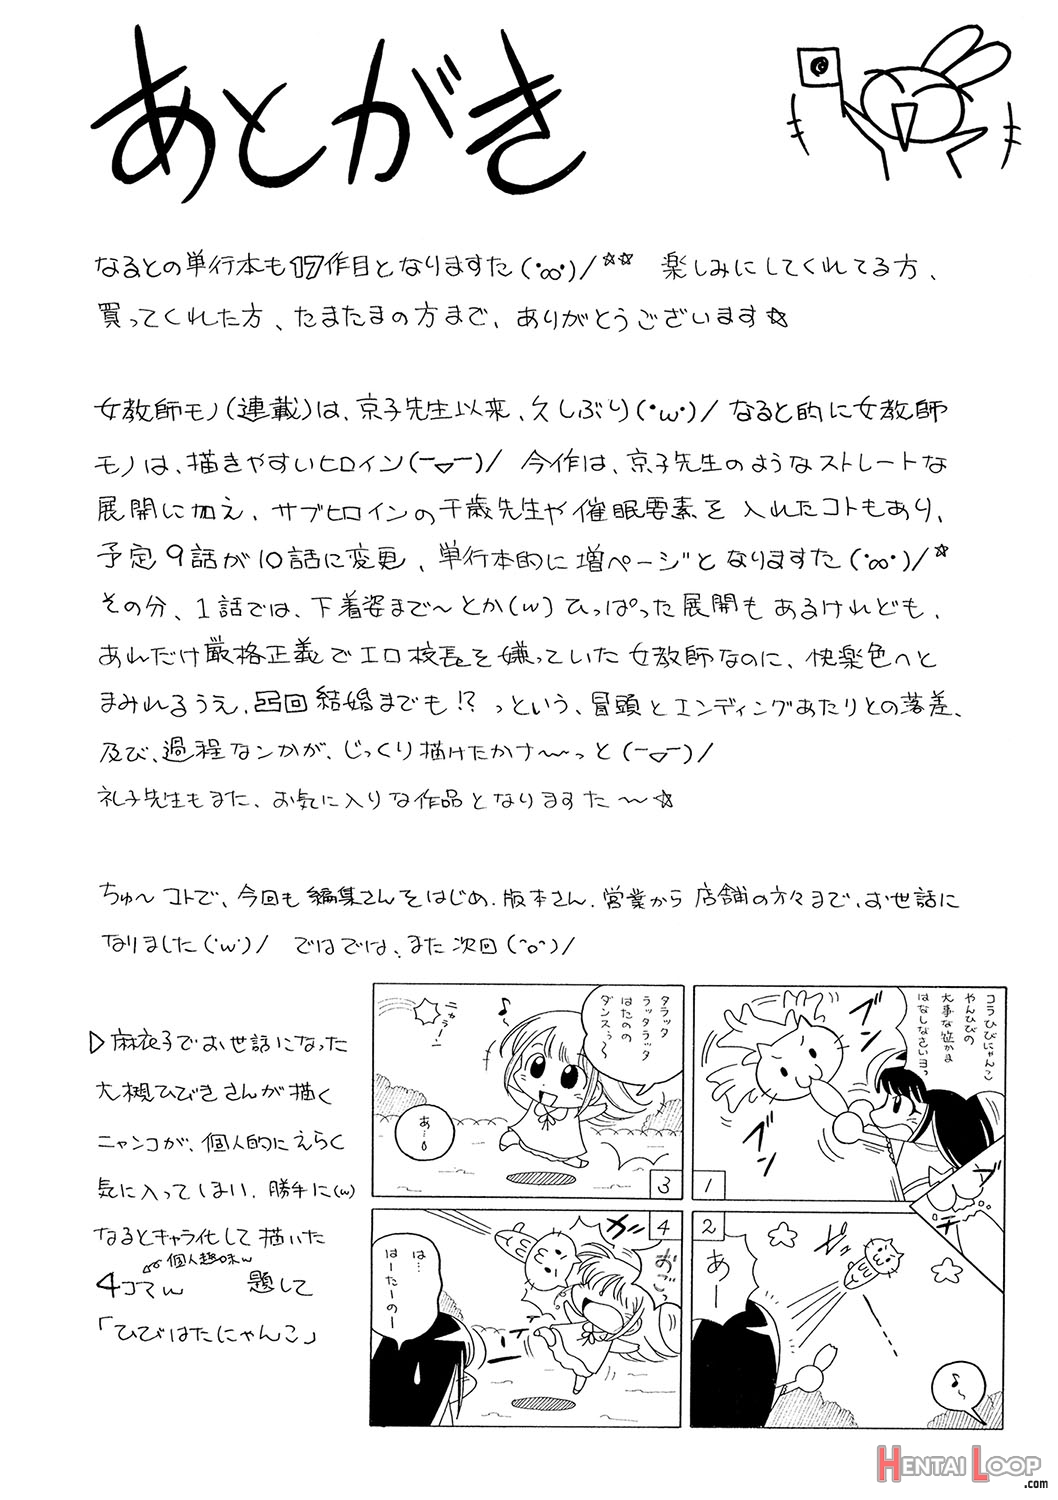 あとがき
なるとの単行本も17作目となりますた(・∞・)/☆☆ 楽しみにしてくれてる方、
買ってくれた方、たまたまの方まで、ありがとうございます☆
女教師モノ(連載)は、京子先生以来、久しぶり(・ω・)/ なると的に女教師
モノは、描きやすいヒロイン(ー▽ー)/ 今作は、京子先生のようなストレートな
展開に加え、サブヒロインの千歳先生や催眠要素を入れたコトもあり、
予定9話が10話に変更、単行本的に増ページとなりますた(・∞・)/☆
その分、1話では、下着姿まで〜とか(w)ひっぱった展開もあるけれども、
あれだけ厳格正義でエロ校長を嫌っていた女教師なのに、快楽色へと
まみれるうえ、凸凹結婚までも!?っという、冒頭とエンディングあたりとの落差、
及び、過程なンかが、じっくり描けたかナ〜〜っと(ー▽ー)/
礼子先生もまた、お気に入りな作品となりますた〜☆
ちゅ〜コトで、今回も編集さんをはじめ、版本さん、営業から店舗の方々まで、お世話に
なりました(・w・)/ ではでは、また次回(^o^)/
▷麻衣子でお世話になった
大槻ひびきさんが描く
ニャンコが、個人的にえらく
気に入ってしまい、勝手に(w)
なるとキャラ化して描いた
個人趣味w
4コマw 題して
「ひびはたにゃんこ」
コラひびにゃんこ
やんひびの
大事な笛かま
はなしなさいヨっ
1
あー
2
♪〜
タラッタ
ラッタラッタ
はたのの
ダンスぅ〜
♪
ニャラー!
あ…
3
ガッ
おごっ
は…
はーたーのー
4
HENTAI LOOP
.com